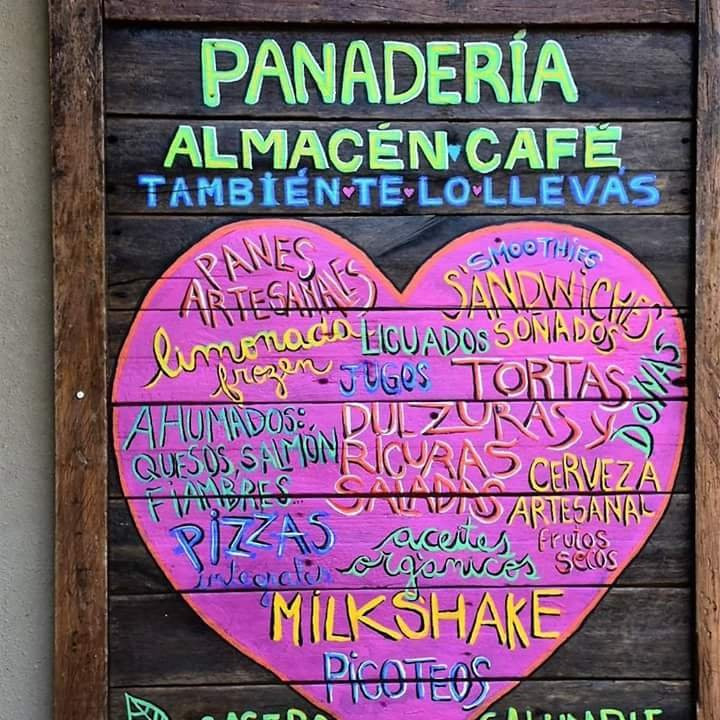 PANADERÍA
ALMACÉN CAFÉ
TAMBIÉN TE LO LLEVÁS
PANES
ARTESANALES
SMOOTHIES
SANDWICHES
SOÑADOS
limonada
frozen
LICUADOS
JUGOS
TORTAS
DONAS
AHUMADOS:
QUESOS, SALMÓN
FIAMBRES...
DULZURAS Y
RICURAS
SALADAS
CERVEZA
ARTESANAL
PIZZAS
integrales
aceites
orgánicos
frutos
secos
MILKSHAKE
PICOTEOS